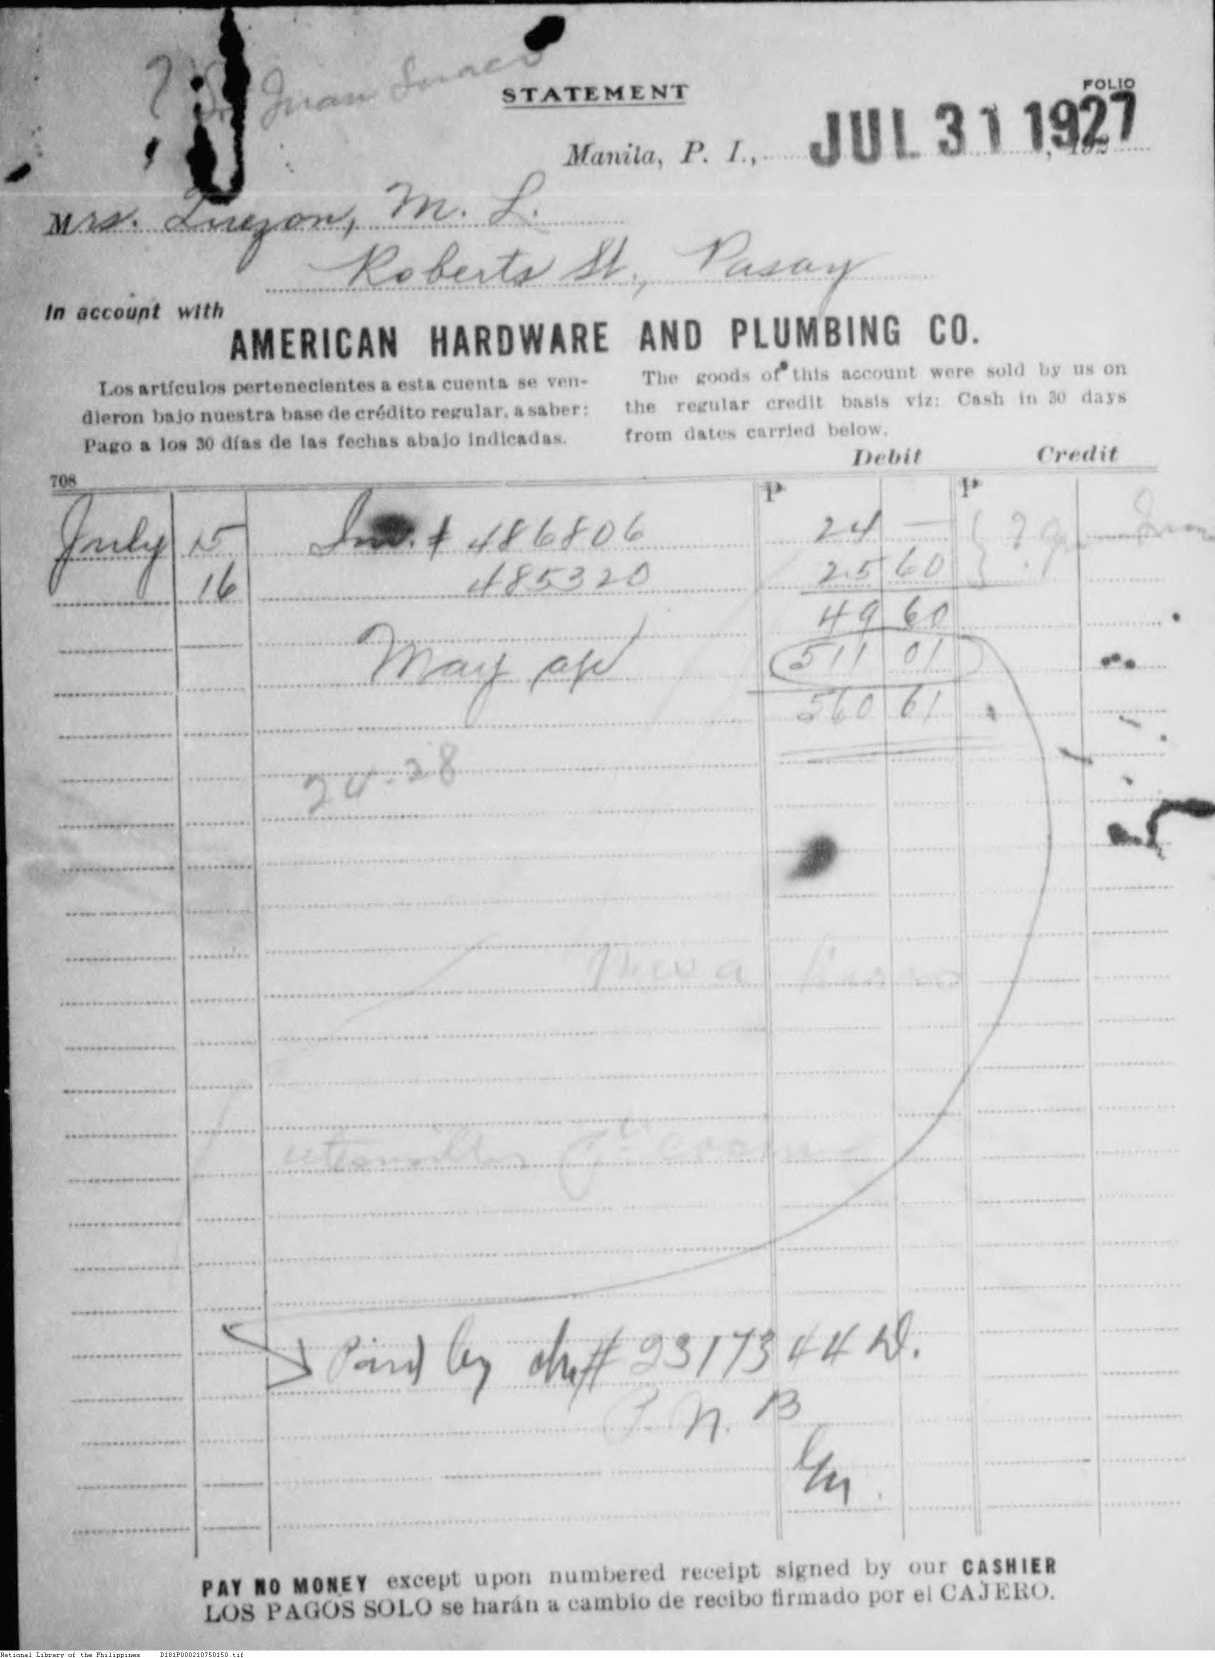 ? Sr. Juan
STATEMENT
FOLIO
Manila, P. I., JUL 31 1927, 192
Mrs. Quezon, M. L.
Roberts St., Pasay
In account with
AMERICAN HARDWARE AND PLUMBING CO.
Los artículos pertenecientes a esta cuenta se ven-
dieron bajo nuestra base de crédito regular, a saber:
Pago a los 30 días de las fechas abajo indicadas.
The goods of this account were sold by us on
the regular credit basis viz: Cash in 30 days
from dates carried below.
Debit Credit
708
P P
July 15 Inv. # 486806 24 —
16 485320 25 60
49 60
May a/c 511 01
560 61
24-28
Mesa
utensilios
Paid by ch # 231734 4 D.
P. N. B
PAY NO MONEY except upon numbered receipt signed by our CASHIER
LOS PAGOS SOLO se harán a cambio de recibo firmado por el CAJERO.
National Library of the Philippines D181P000210750150.tif